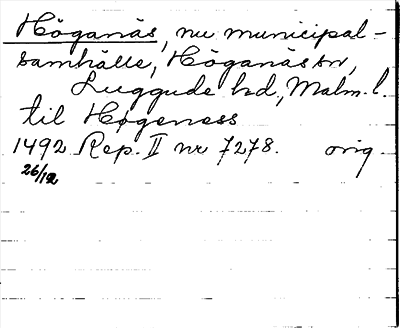 Höganäs, nu municipal-
samhälle, Höganäs sn,
Luggude hd, Malm. l.
til Høgeness
1492 Rep. II nr 7278. orig.
26/12